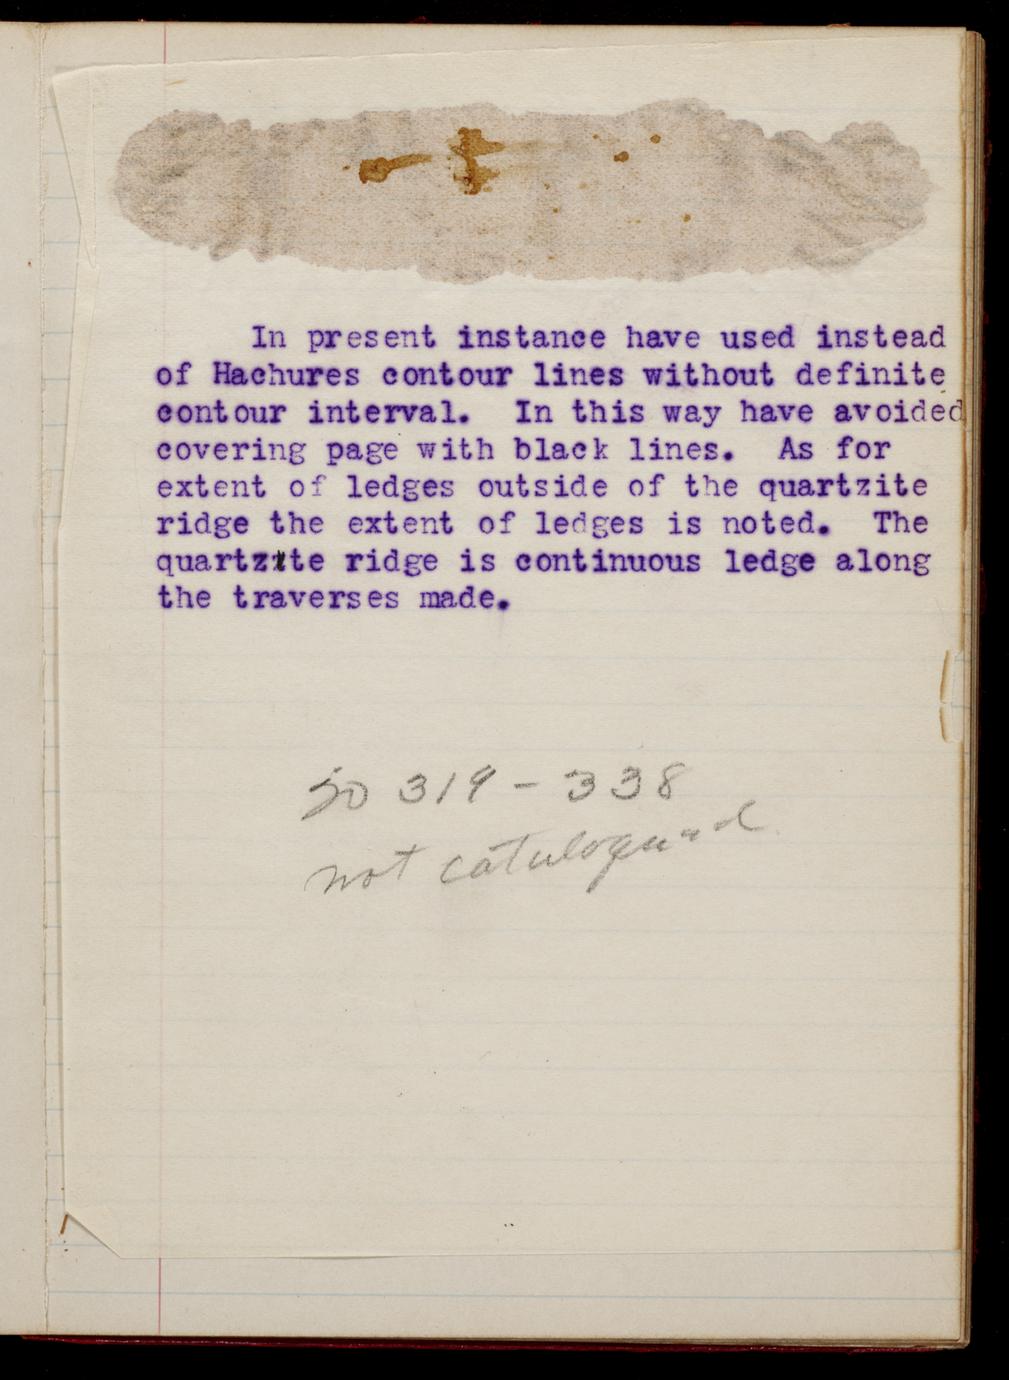 In present instance have used instead
of Hachures contour lines without definite
contour interval. In this way have avoided
covering page with black lines. As for
extent of ledges outside of the quartzite
ridge the extent of ledges is noted. The
quartzite ridge is continuous ledge along
the traverses made.
319 - 338
not catalogued